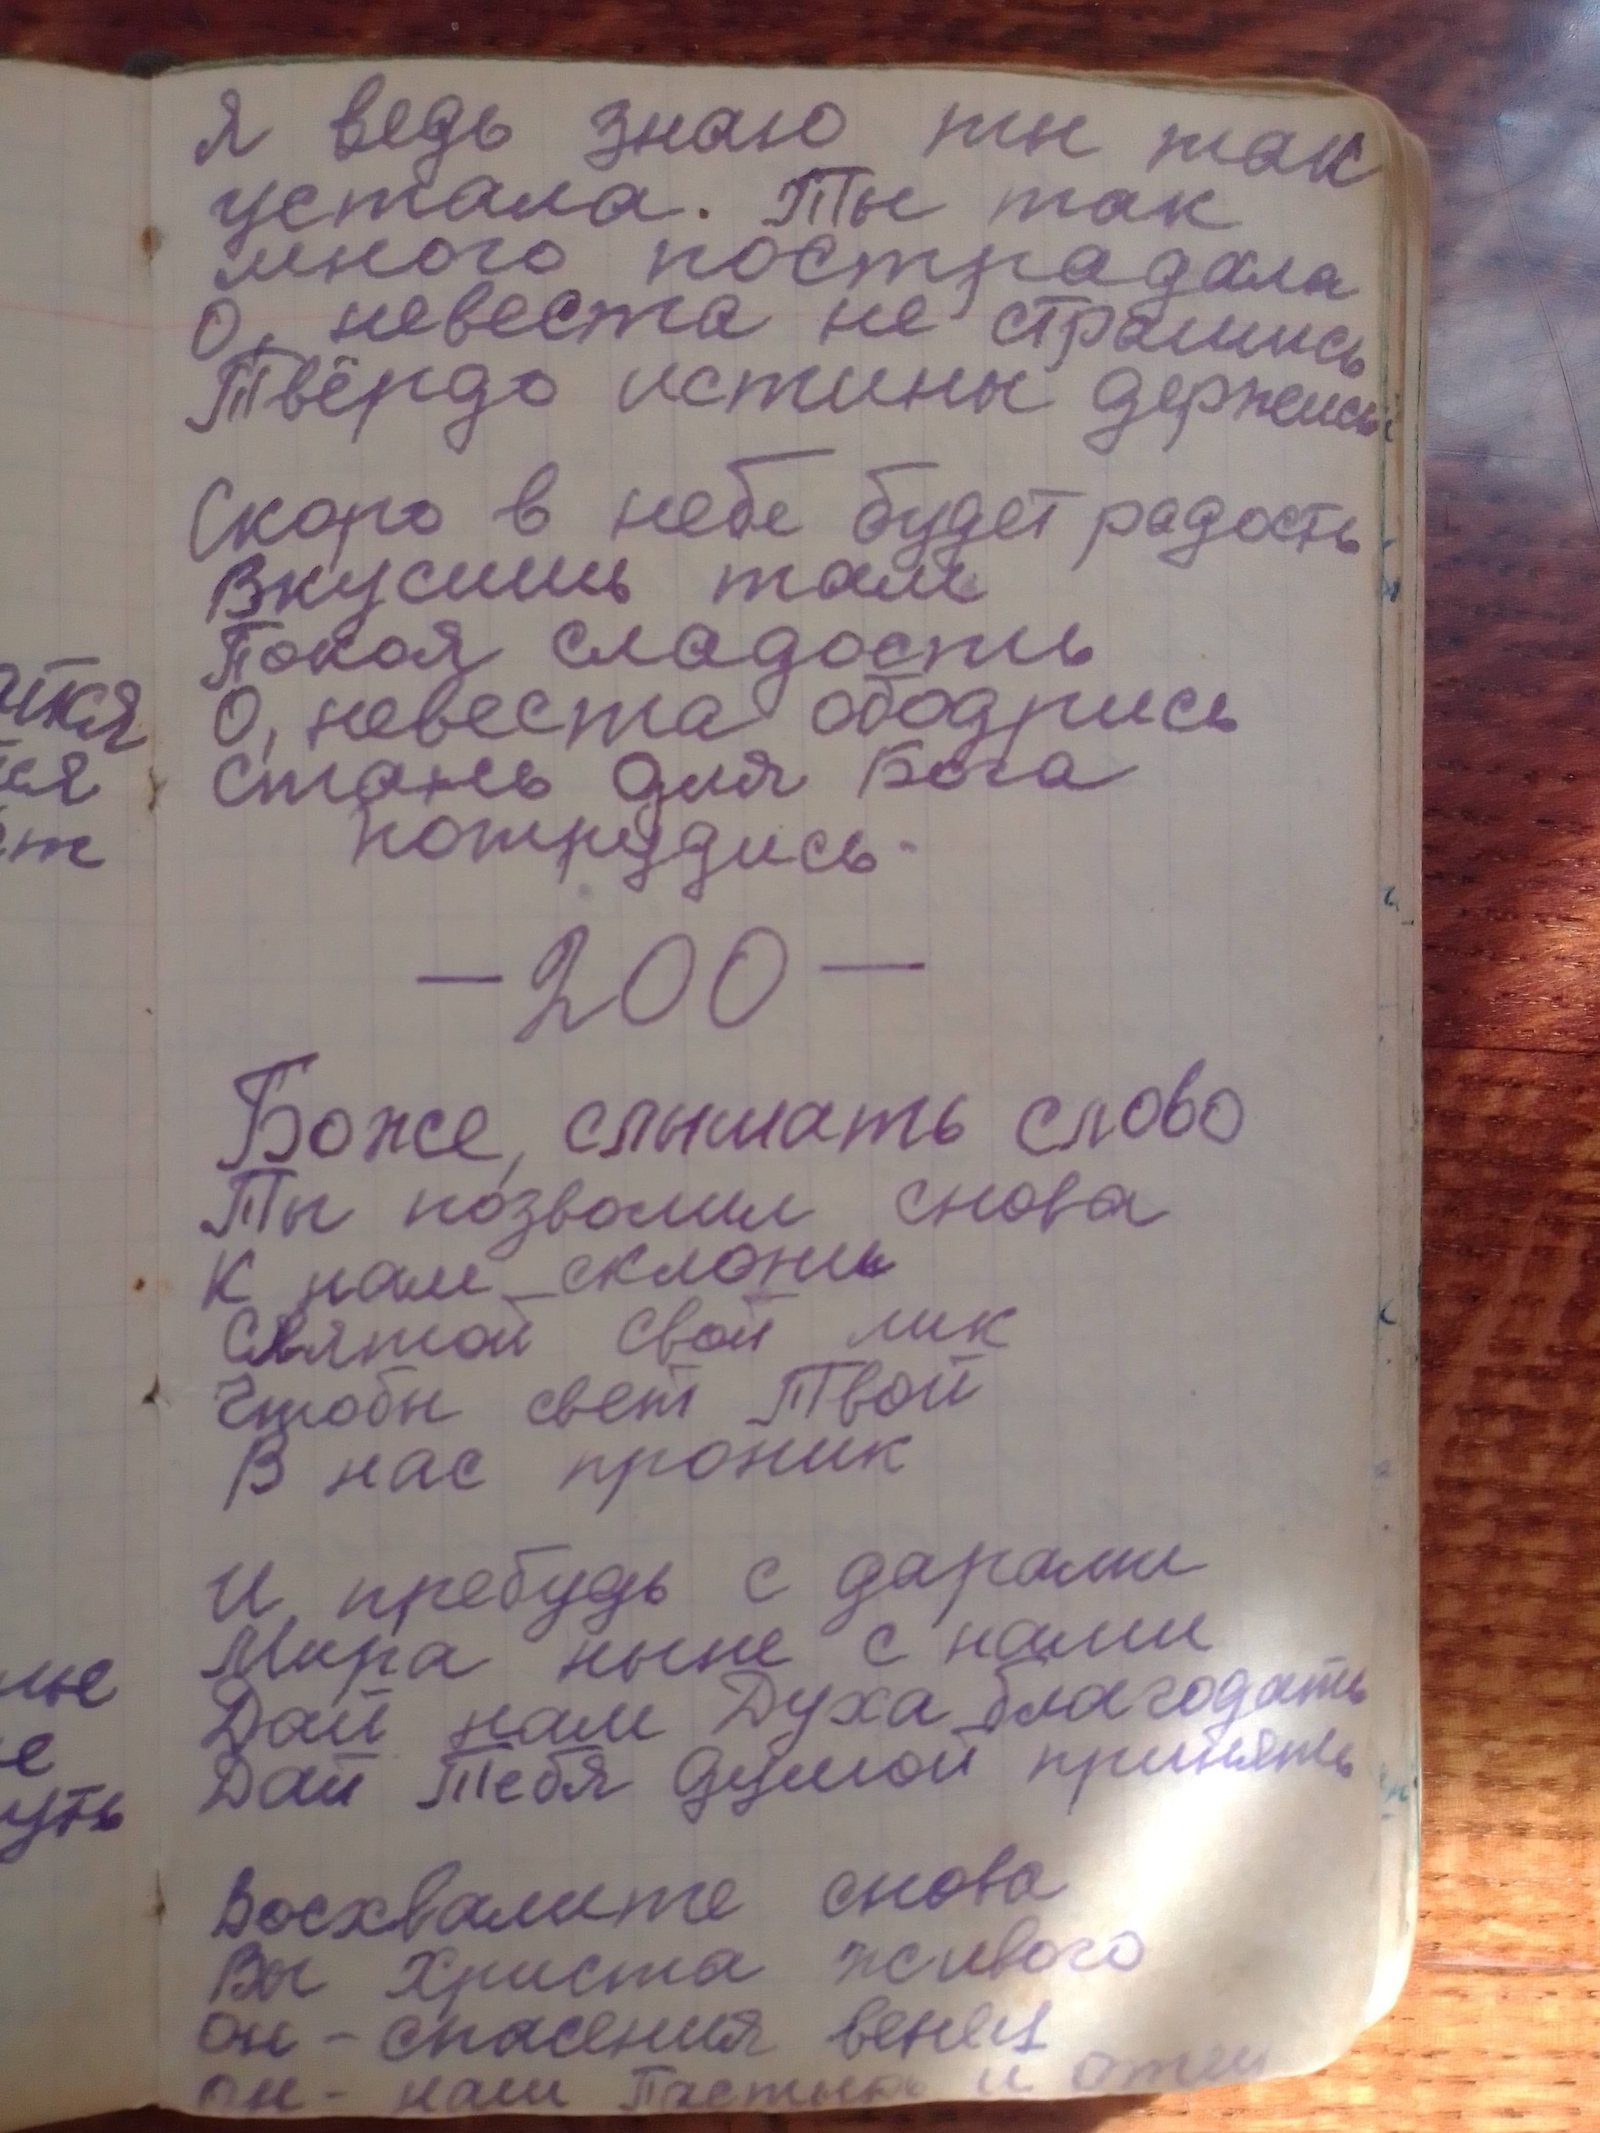 Я ведь знаю ты так
устала. Ты так
много пострадала
О, невеста не страшись
Твёрдо истины держись
Скоро в небе будет радость
Вкусишь там
Покоя сладость
О, невеста ободрись
Стань для Бога
потрудись.
-200-
Боже, слышать слово
Ты позволил снова
К нам склони
Святой свой лик
Чтобы свет Твой
В нас проник
И пребудь с дарами
Мира ныне с нами
Дай нам Духа благодать
Дай Тебя душой принять
Восхвалите снова
Вы Христа живого
Он - спасения венец
Он - наш Пастырь и отец